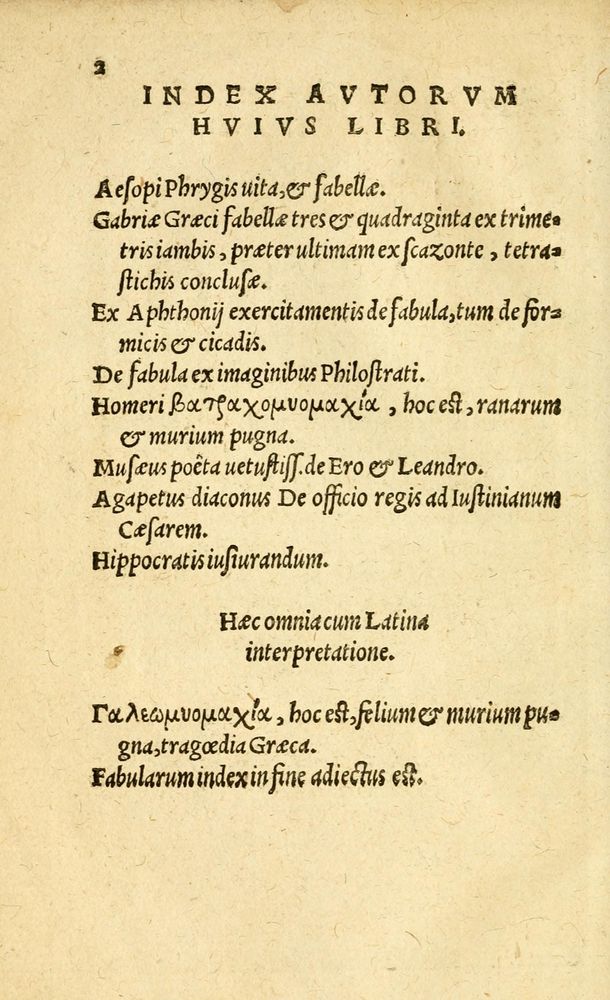 2
INDEX AVTORVM
HVIVS LIBRI.
Aeſopi Phrygis uita, & fabellæ.
Gabriæ Græci fabellæ tres & quadraginta ex trime-
tris iambis, præter ultimam ex ſcazonte, tetra-
ſtichis concluſæ.
Ex Aphthonij exercitamentis de fabula, tum de for-
micis & cicadis.
De fabula ex imaginibus Philoſtrati.
Homeri βατραχομυομαχία, hoc eſt, ranarum
& murium pugna.
Muſæus poêta uetuſtiſſ. de Ero & Leandro.
Agapetus diaconus De officio regis ad Iuſtinianum
Cæſarem.
Hippocratis iuſiurandum.
Hæc omnia cum Latina
interpretatione.
Γαλεωμυομαχία, hoc eſt, felium & murium pu-
gna, tragœdia Græca.
Fabularum index in fine adiectus eſt.